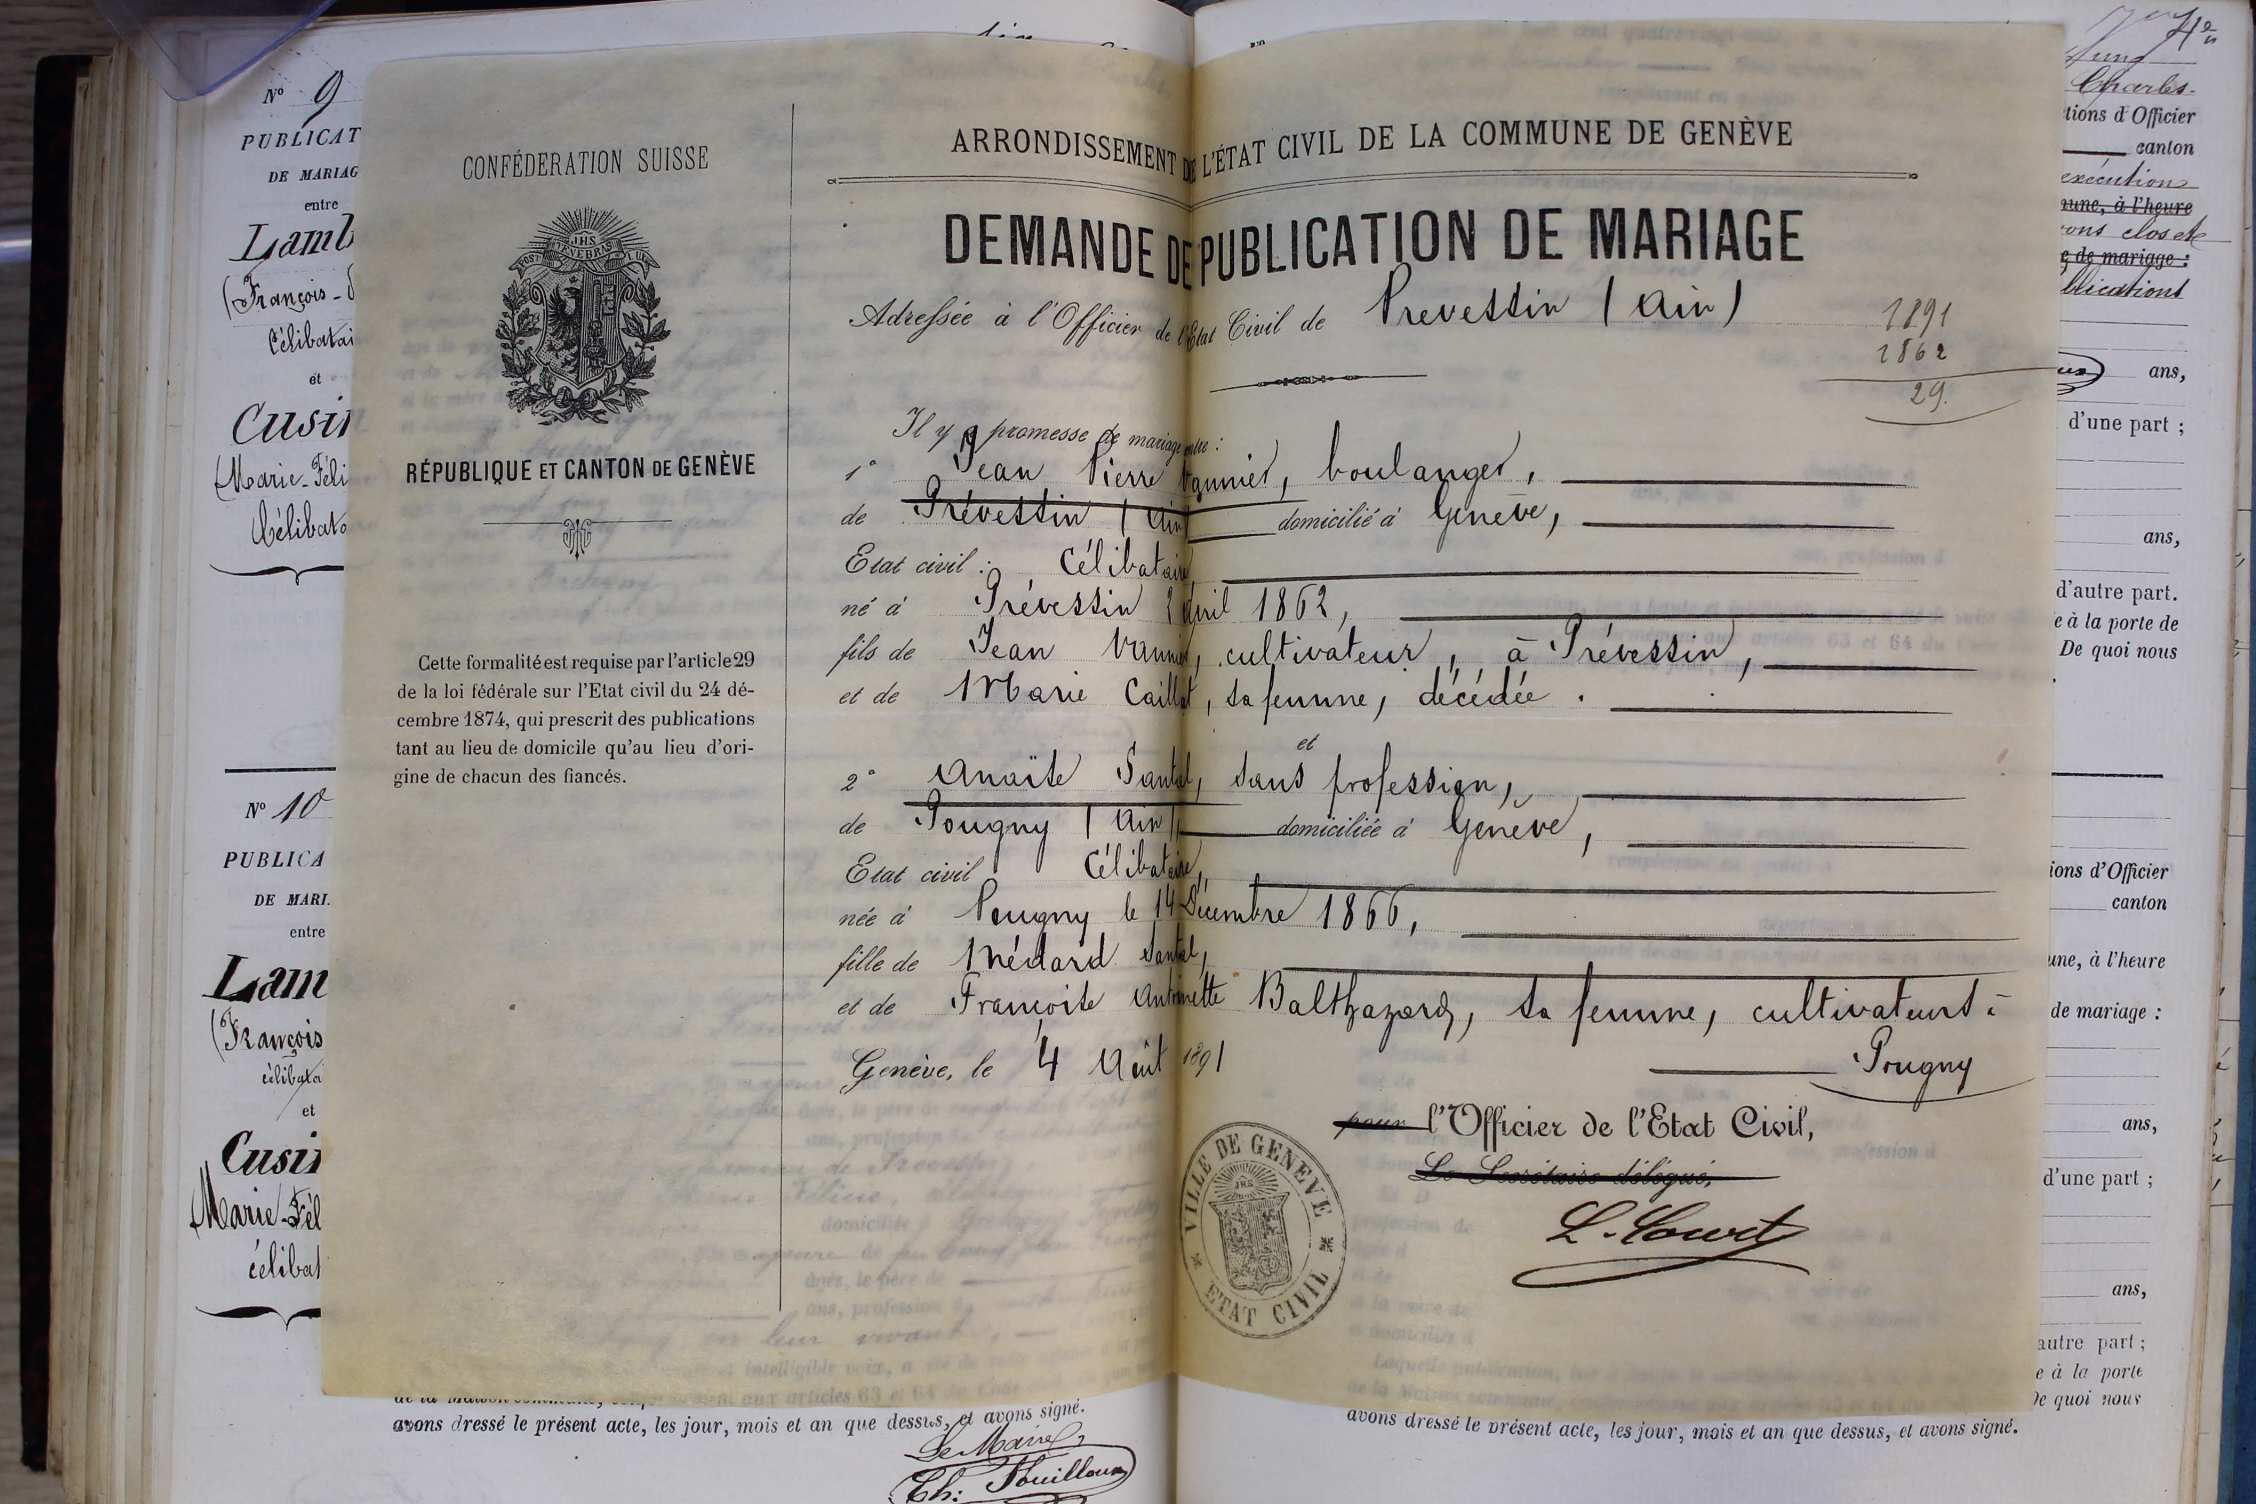 Nº 9
PUBLICAT
DE MARIAG
entre
Lamb
(François-
Célibatai
et
Cusin
(Marie-Féli
Célibata
Nº 10
PUBLICA
DE MARI
entre
Lam
(François
célibata
et
Cusin
(Marie-Fél
célibat
CONFÉDERATION SUISSE
POST TENEBRAS LUX
JHS
RÉPUBLIQUE ET CANTON DE GENÈVE
Cette formalité est requise par l'article 29
de la loi fédérale sur l'Etat civil du 24 dé-
cembre 1874, qui prescrit des publications
tant au lieu de domicile qu'au lieu d'ori-
gine de chacun des fiancés.
ARRONDISSEMENT DE L'ÉTAT CIVIL DE LA COMMUNE DE GENÈVE
DEMANDE DE PUBLICATION DE MARIAGE
Adressée à l'Officier de l'Etat Civil de Prevessin (Ain)
1891
1862
29.
Il y a promesse de mariage entre :
1° Jean Pierre Vannier, boulanger,
de Prévessin (Ain) domicilié à Genève,
Etat civil : Célibataire,
né à Prévessin 2 avril 1862,
fils de Jean Vannier, cultivateur, à Prévessin,
et de Marie Caillat, sa femme, décédée.
et
2° Anaïse Santal, sans profession,
de Pougny (Ain), domiciliée à Genève,
Etat civil Célibataire,
née à Pougny le 14 Décembre 1866,
fille de Médard Santal,
et de Françoise Antoinette Balthazard, sa femme, cultivateurs à
Pougny
Genève, le 4 Août 1891
pour l'Officier de l'Etat Civil,
Le Secrétaire délégué,
VILLE DE GENEVE
JHS
ETAT CIVIL
Charles
tions d'Officier
canton
exécution
mune, à l'heure
vons clos et
e de mariage :
blications
ans,
d'une part ;
ans,
d'autre part.
e à la porte de
De quoi nous
ions d'Officier
canton
une, à l'heure
de mariage :
ans,
d'une part ;
ans,
autre part ;
e à la porte
De quoi nous
avons dressé le présent acte, les jour, mois et an que dessus, et avons signé.
Le Maire
Ch: Fouilloux
avons dressé le présent acte, les jour, mois et an que dessus, et avons signé.